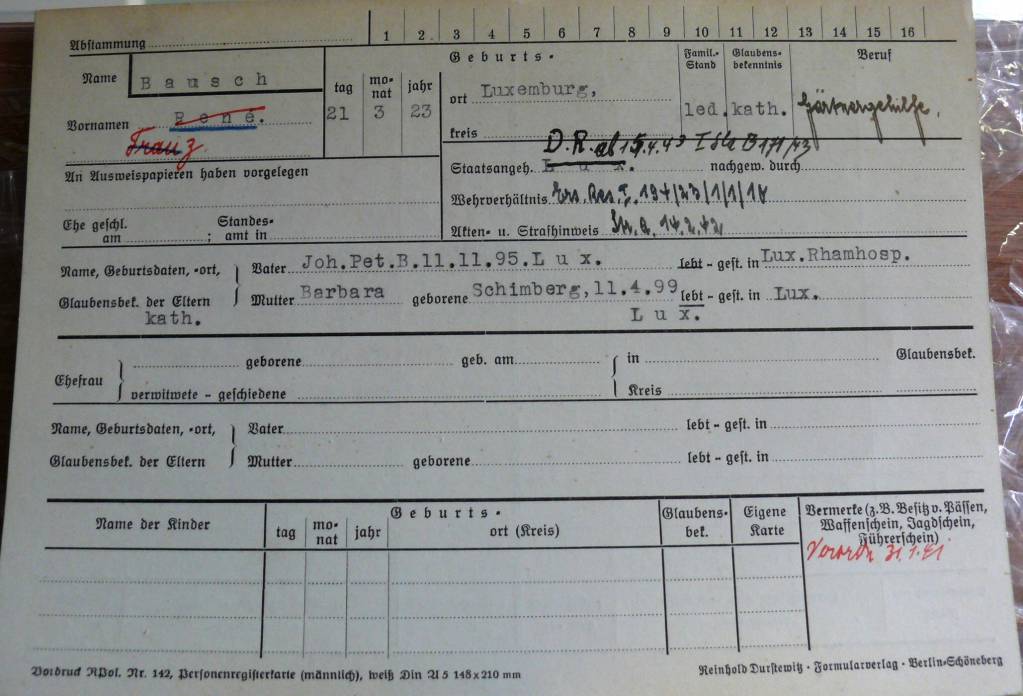 Abstammung
1 2 3 4 5 6 7 8 9 10 11 12 13 14 15 16
Name Bausch
Vornamen René.
Franz
tag monat jahr
21 3 23
Geburts-
ort Luxemburg,
kreis
Famil.-Stand
led.
Glaubensbekenntnis
kath.
Beruf
Gärtnergehilfe.
An Ausweispapieren haben vorgelegen
D.R. ab
Staatsangeh. Lux. nachgew. durch
Wehrverhältnis Ers. Res. I. 194/23/1/1/18
Ehe geschl. am ; Standesamt in
Akten- u. Strafhinweis 14.2.42
Name, Geburtsdaten, -ort, Glaubensbek. der Eltern
kath.
Vater Joh.Pet.B.11.11.95.Lux. lebt - gest. in Lux.Rhamhosp.
Mutter Barbara geborene Schimberg,11.4.99 lebt - gest. in Lux.
Lux.
Ehefrau geborene geb. am in Glaubensbek.
verwitwete - geschiedene Kreis
Name, Geburtsdaten, -ort, Vater lebt - gest. in
Glaubensbek. der Eltern Mutter geborene lebt - gest. in
Name der Kinder
Geburts-
tag monat jahr ort (Kreis)
Glaubensbek.
Eigene Karte
Vermerke (z.B. Besitz v. Pässen,
Waffenschein, Jagdschein,
Führerschein)
Vordruck RPol. Nr. 142, Personenregisterkarte (männlich), weiß Din A5 148x210 mm
Reinhold Durstewitz · Formularverlag · Berlin-Schöneberg